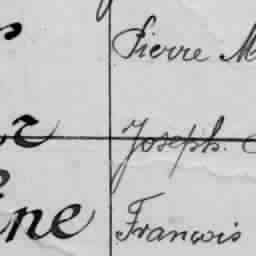 Pierre M
Joseph.
ine François